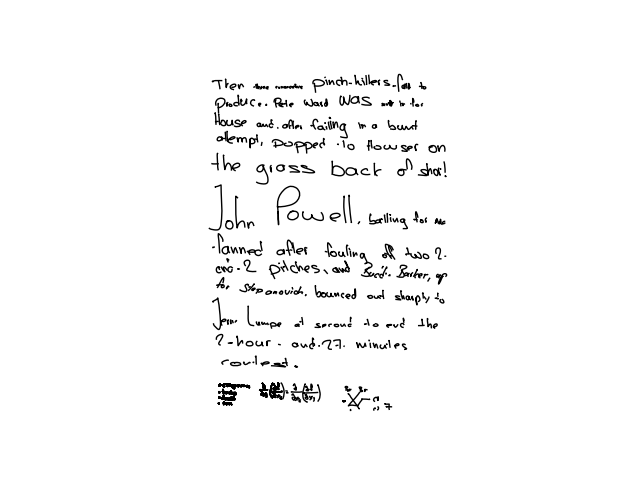 Then three consecutive pinch-hitters fail to
produce. Pete Ward was sent in for
House and, after failing in a bunt
attempt, popped to Howser on
the grass back of short!
John Powell, batting for
fanned after fouling off two 2-
and-2 pitches, and Buddy Barker, up
for Stepanovich, bounced out sharply to
Jerry Lumpe at second to end the
2-hour-and-27 minutes
contest.